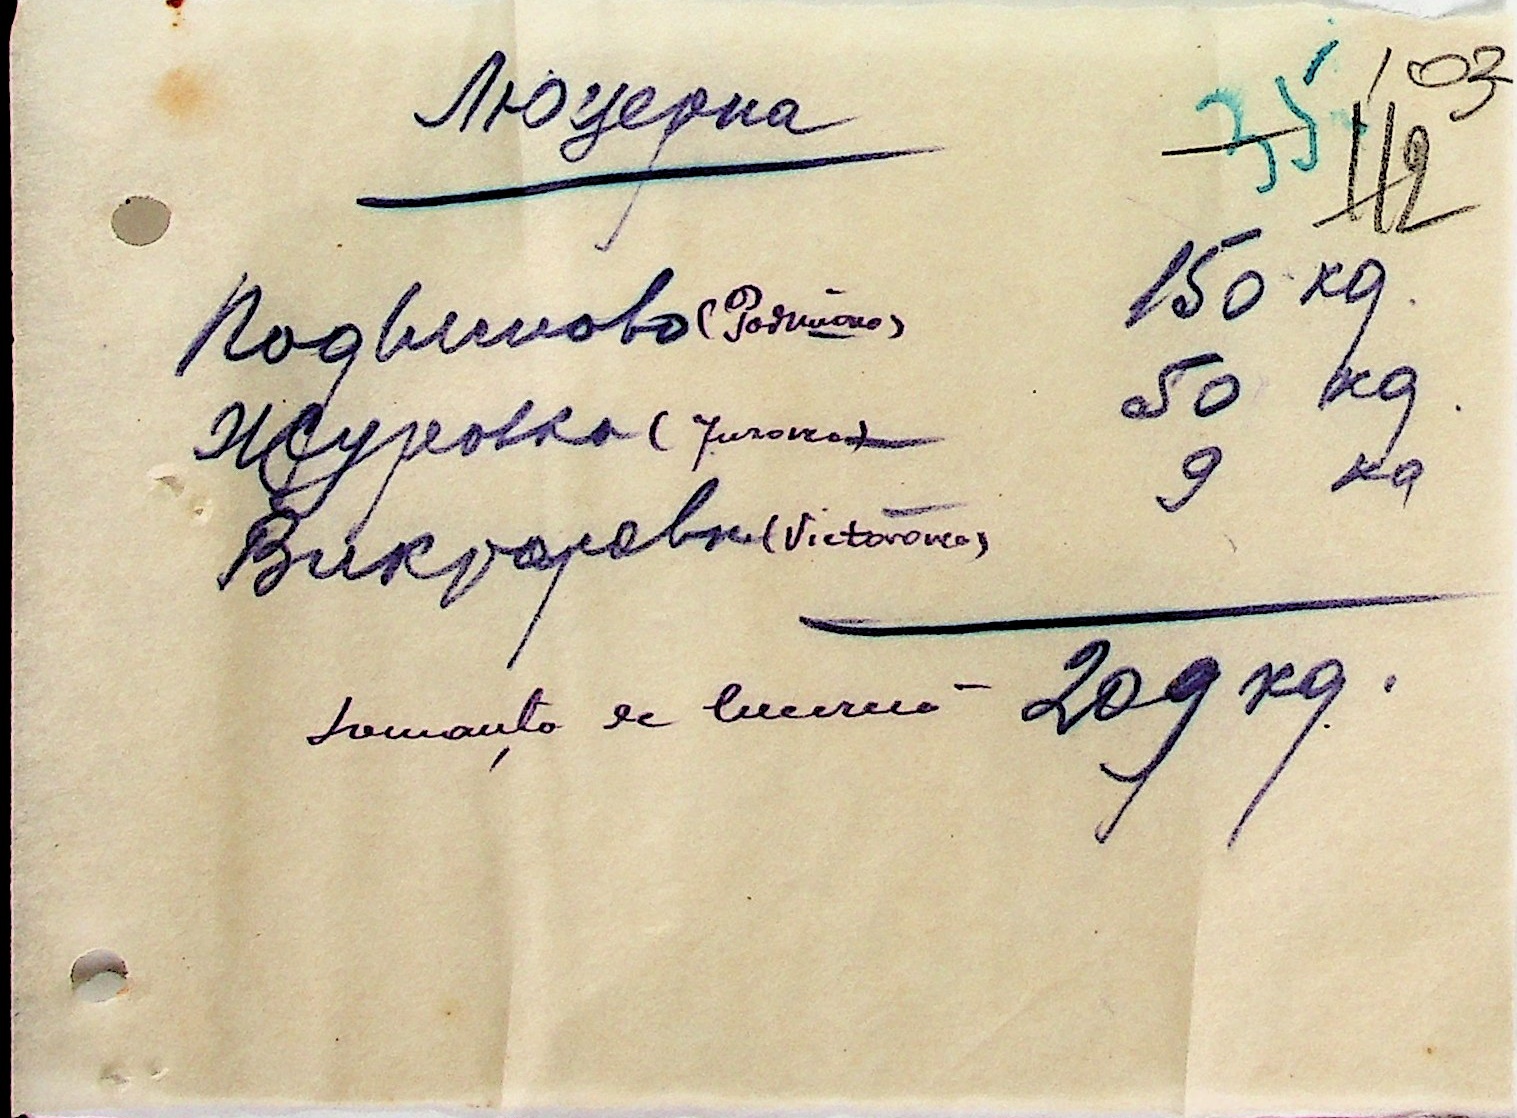 Люцерна
35 103
112
Подвиново (Podvinovo) 150 кg.
Журовка (Jurovca) 50 кg.
Викторовка (Victorovca) 9 кg
Semanța de lucernă 209 кg.